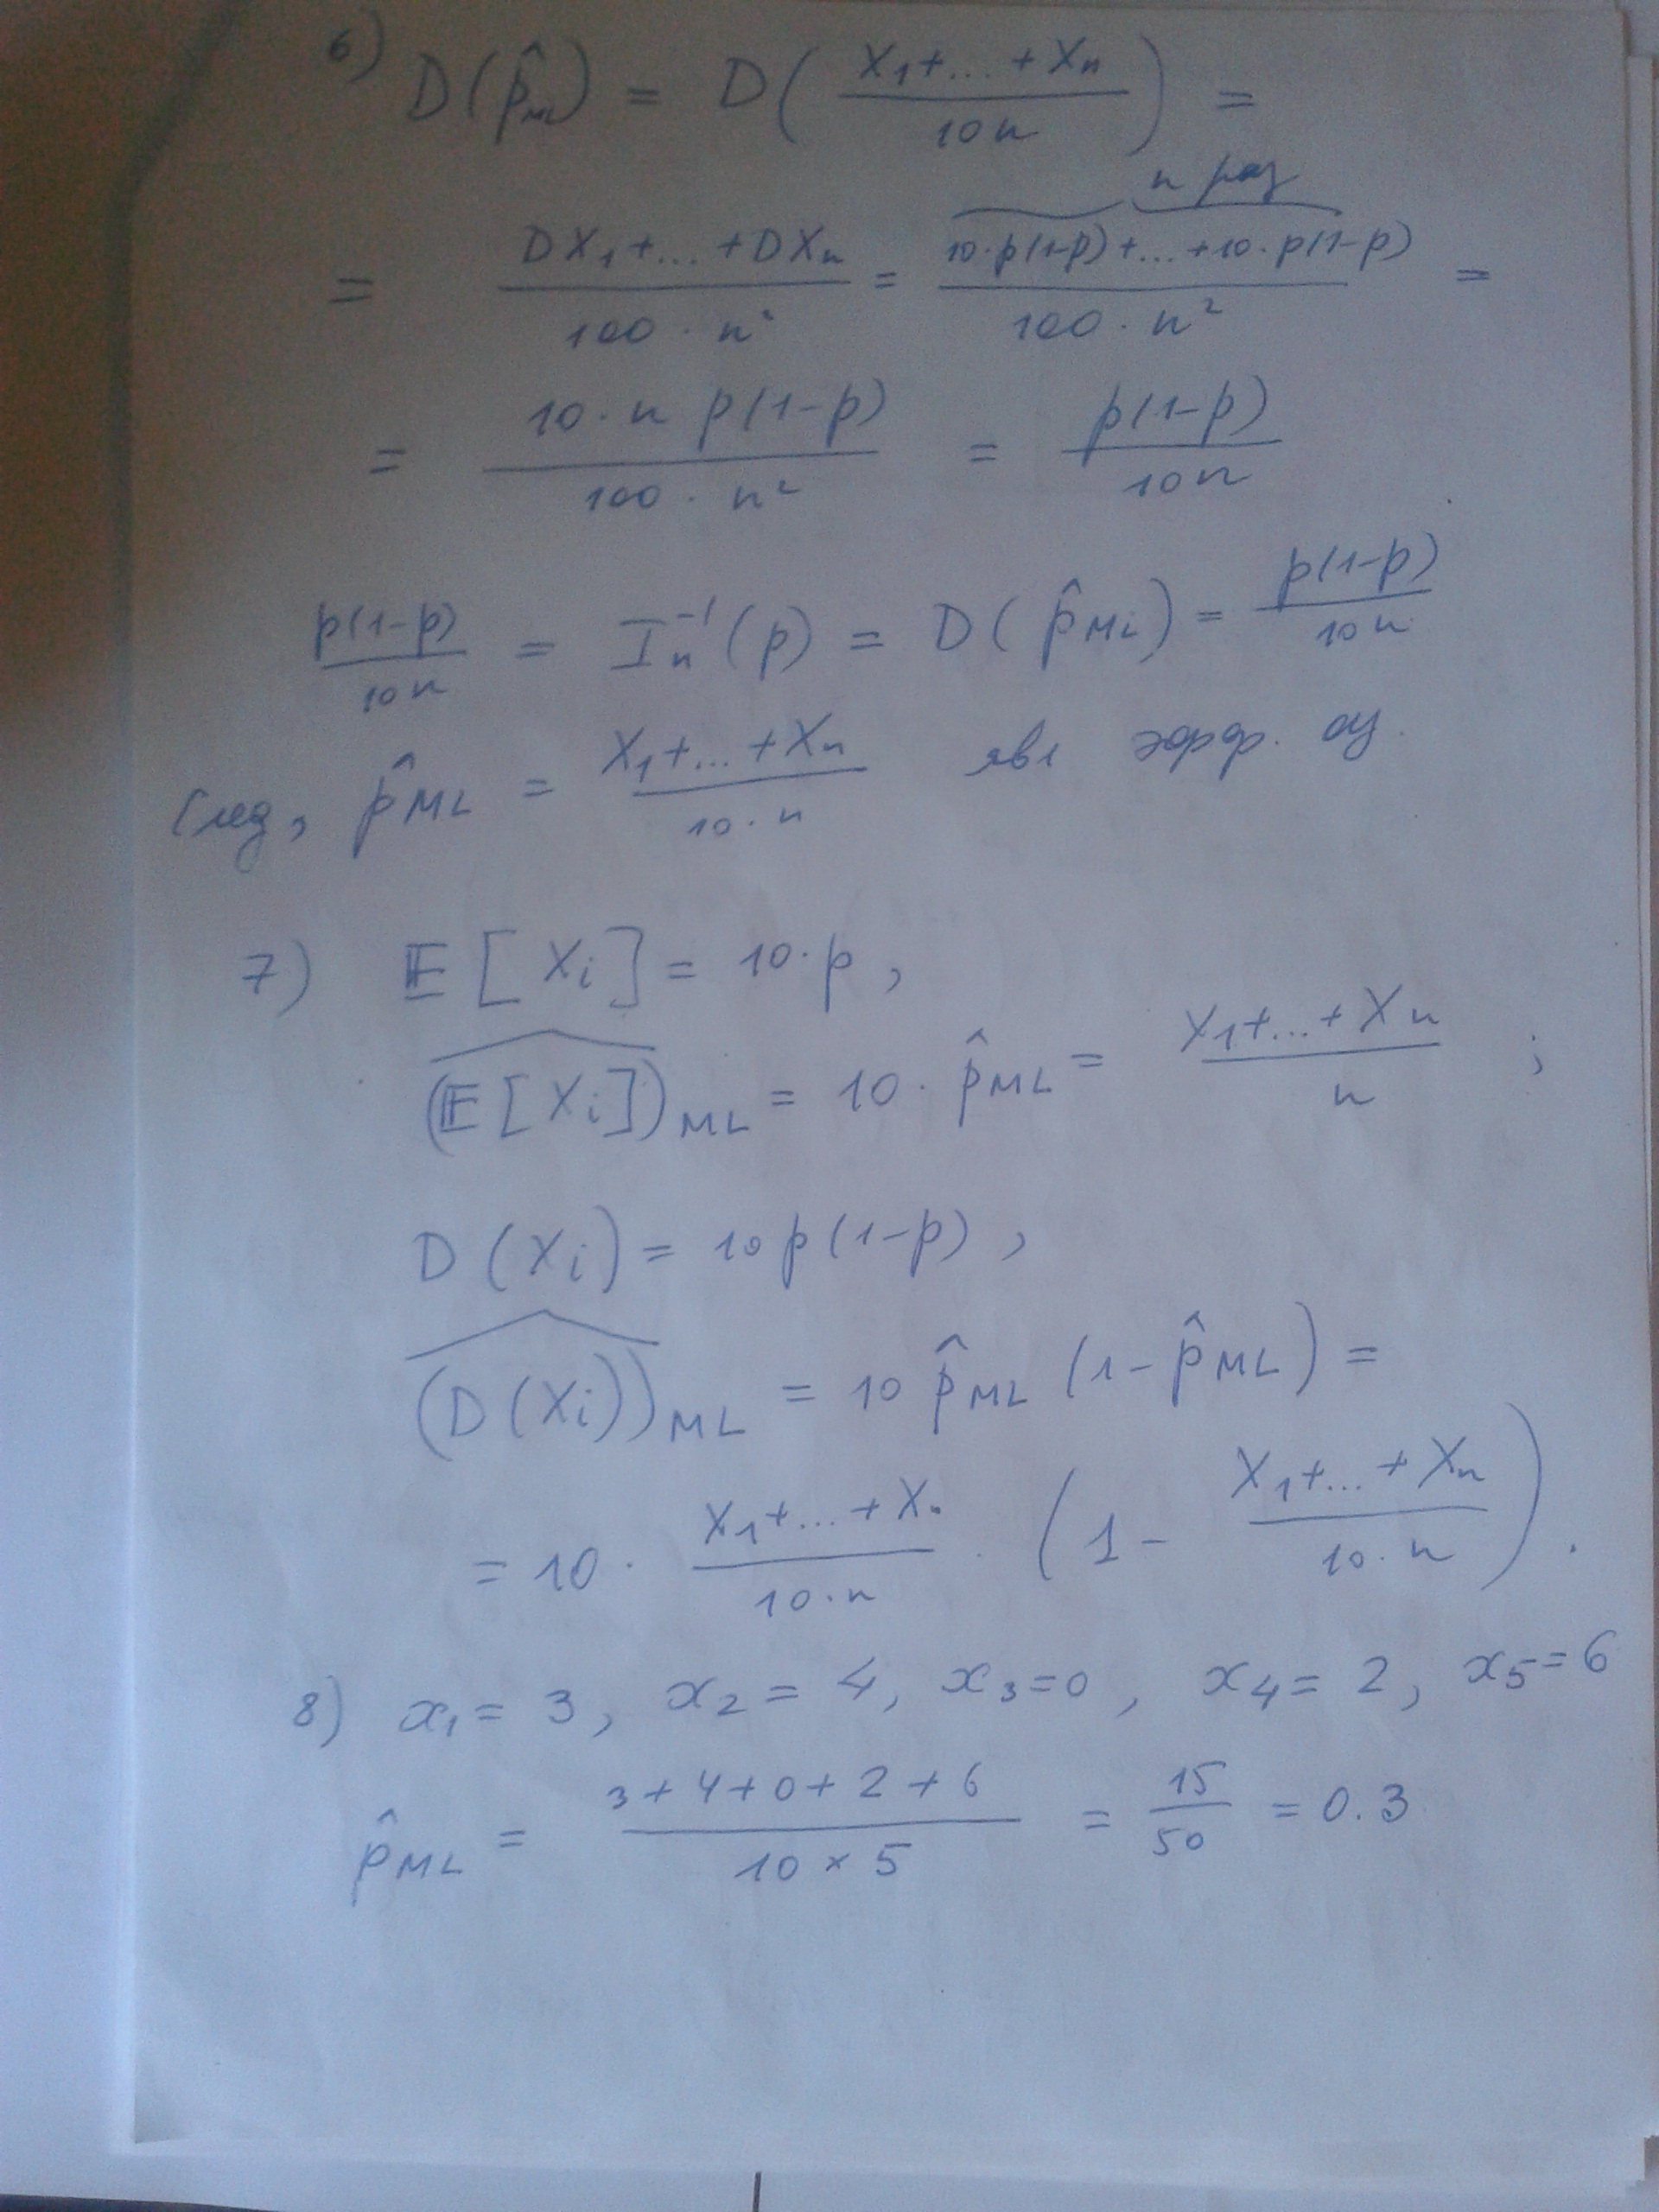 6) D(p̂_ML) = D( (X₁+...+Xₙ) / 10n ) =
n раз
= (DX₁+...+DXₙ) / (100·n²) = (10·p(1-p)+...+10·p(1-p)) / (100·n²) =
= (10·n p(1-p)) / (100·n²) = p(1-p) / 10n
p(1-p) / 10n = Iₙ⁻¹(p) = D(p̂_ML) = p(1-p) / 10n
След, p̂_ML = (X₁+...+Xₙ) / (10·n) явл эфф. оц.
7) 𝔼[Xᵢ] = 10·p,
(𝔼[Xᵢ])^_ML = 10·p̂_ML = (X₁+...+Xₙ) / n ;
D(Xᵢ) = 10p(1-p),
(D(Xᵢ))^_ML = 10 p̂_ML (1-p̂_ML) =
= 10 · (X₁+...+Xₙ) / (10·n) · (1 - (X₁+...+Xₙ) / (10·n)).
8) x₁ = 3, x₂ = 4, x₃=0, x₄ = 2, x₅=6
p̂_ML = (3+4+0+2+6) / (10×5) = 15/50 = 0.3